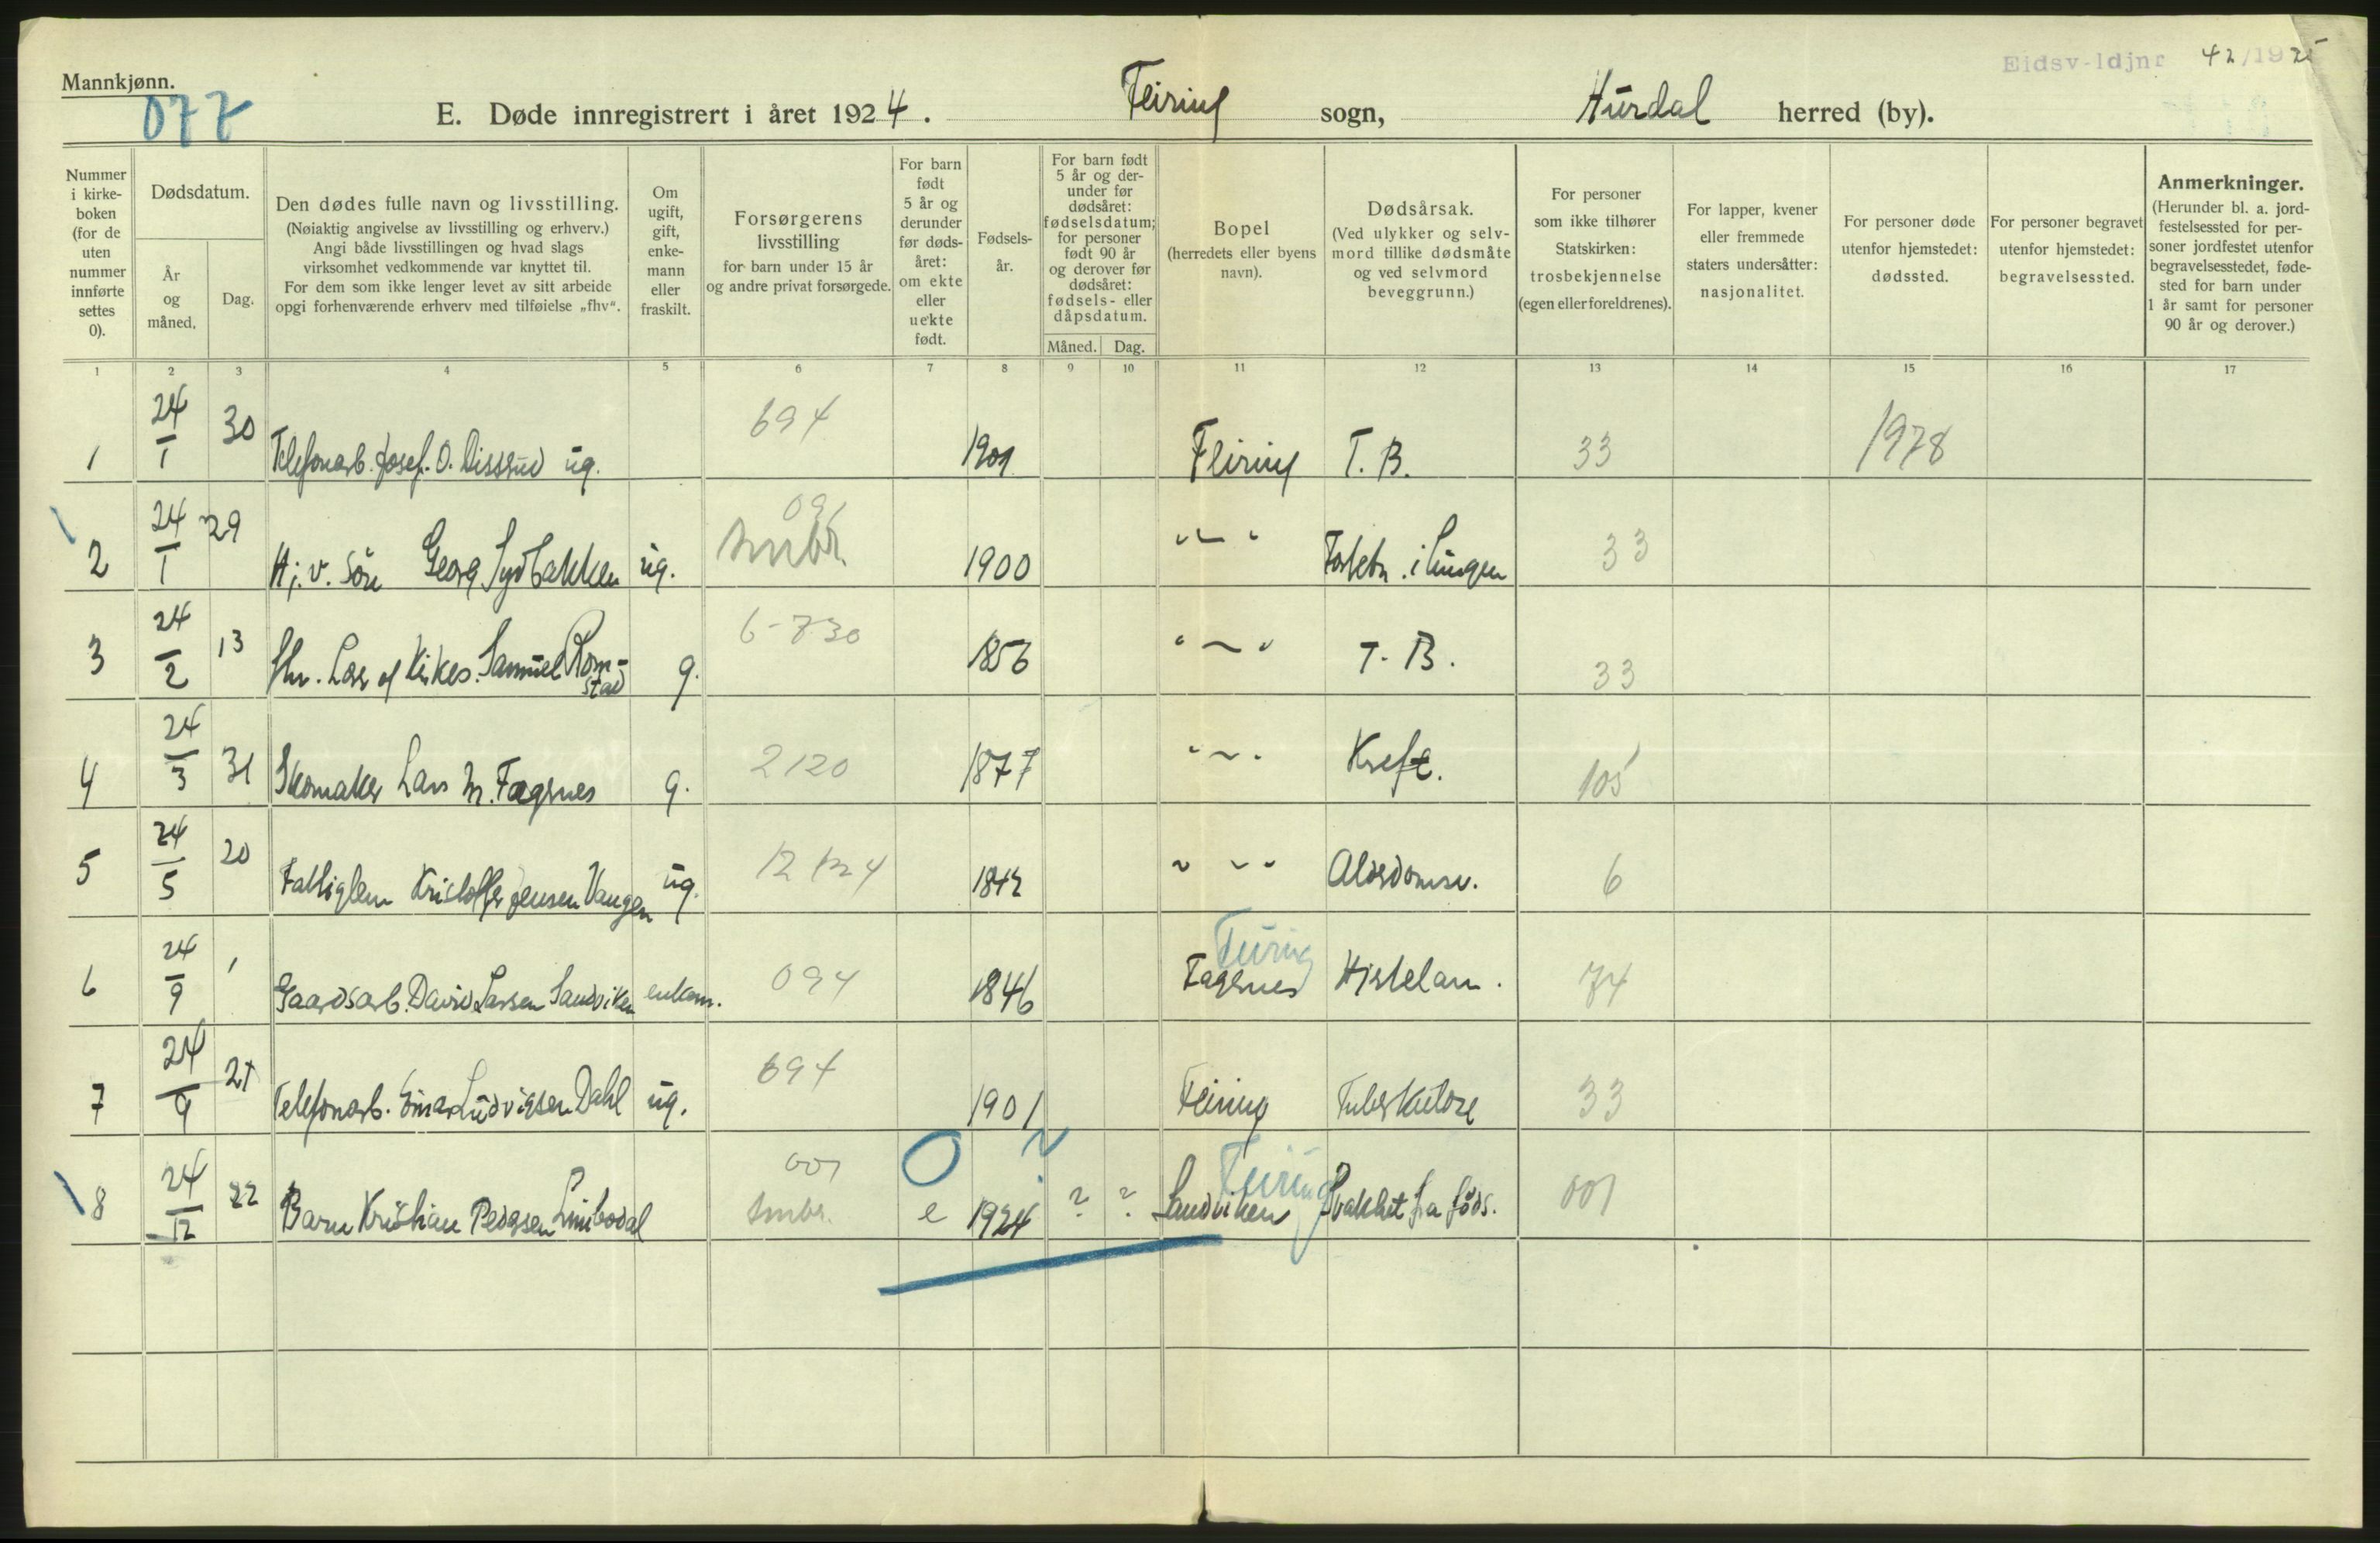 Mannkjønn.
077
Eidsv-ldjnr 42/1925
E. Døde innregistrert i året 1924. Feiring sogn, Hurdal herred (by).
Nummer i kirke-boken (for de uten nummer innførte settes 0).
Dødsdatum.
År og måned.
Dag.
Den dødes fulle navn og livsstilling.
(Nøiaktig angivelse av livsstilling og erhverv.)
Angi både livsstillingen og hvad slags
virksomhet vedkommende var knyttet til.
For dem som ikke lenger levet av sitt arbeide
opgi forhenværende erhverv med tilføielse „fhv“.
Om ugift, gift, enke-mann eller fraskilt.
Forsørgerens livsstilling
for barn under 15 år
og andre privat forsørgede.
For barn født 5 år og derunder før døds-året: om ekte eller uekte født.
Fødsels-år.
For barn født 5 år og der-under før dødsåret: fødselsdatum; for personer født 90 år og derover før dødsåret: fødsels- eller dåpsdatum.
Måned. Dag.
Bopel
(herredets eller byens navn).
Dødsårsak.
(Ved ulykker og selv-mord tillike dødsmåte og ved selvmord beveggrunn.)
For personer som ikke tilhører Statskirken: trosbekjennelse (egen eller foreldrenes).
For lapper, kvener eller fremmede staters undersåtter: nasjonalitet.
For personer døde utenfor hjemstedet: dødssted.
For personer begravet utenfor hjemstedet: begravelsessted.
Anmerkninger.
(Herunder bl. a. jord-festelsessted for per-soner jordfestet utenfor begravelsesstedet, føde-sted for barn under 1 år samt for personer 90 år og derover.)
1 2 3 4 5 6 7 8 9 10 11 12 13 14 15 16 17
1 24/1 30 Telefonarb. Josef. O. Disserud ug. 694 1901 Feiring T. B. 33 1978
2 24/1 29 Hj. v. Søn Georg Sydbakken ug. 091 Smbr. 1900 " — " 33
3 24/2 13 fhv. Lær. of Kirkes. Samuel Romstad g. 6-730 1856 " ~ " T. B. 33
4 24/3 31 Skomaker Lars M. Fagernes g. 2120 1877 " ~ " Kreft. 105
5 24/5 20 Fattiglem Kristoffer Jensen Vangen ug. 12 1842 " ~ " Alderdomssv. 6
6 24/9 1 Gaardsarb. David Larsen Sandviken enkem. 094 1846 Feiring Fagernes Hjertelam. 74
7 24/9 21 Telefonarb. Einar Ludvigsen Dahl ug. 694 1901 Feiring Tuberkulose 33
8 24/12 22 Barn Kristian Pedersen 001 Smbr. 0 e 1924 ? ? Feiring Sandviken Svakhet fra føds. 001